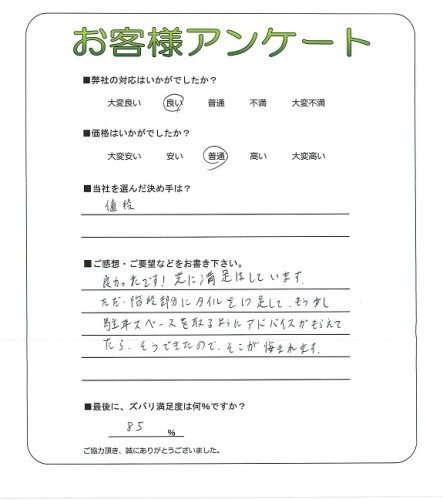 お客様アンケート
■弊社の対応はいかがでしたか？
大変良い 良い 普通 不満 大変不満
■価格はいかがでしたか？
大変安い 安い 普通 高い 大変高い
■当社を選んだ決め手は？
値段
■ご感想・ご要望などをお書き下さい。
良かったです！ 共に満足はしています。
ただ、階段部分にタイルを1つ足して、もう少し
駐車スペースを取るようにアドバイスがもらえて
たら、そうできたので、そこが悔まれます。
■最後に、ズバリ満足度は何%ですか？
85 %
ご協力頂き、誠にありがとうございました。